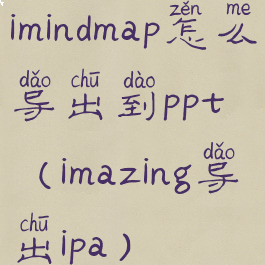 zěn me
imindmap怎么
dǎo chū dào
导出到ppt
dǎo
(imazing导
chū
出ipa)